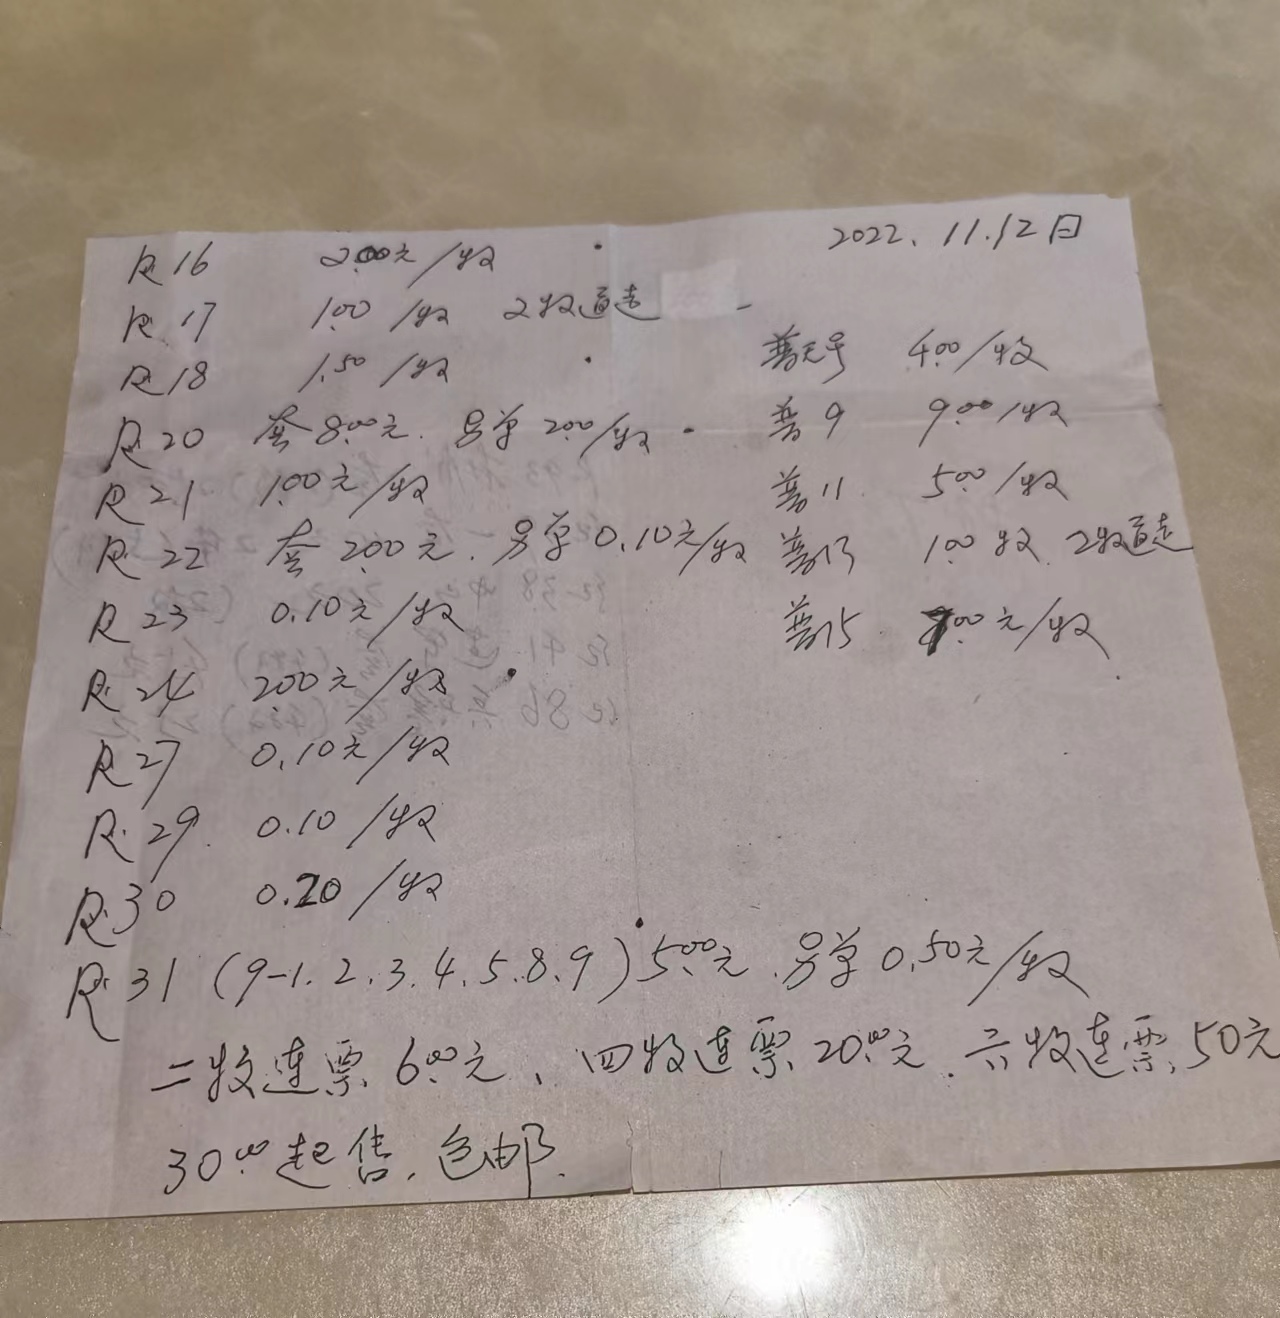 2022.11.12日
R16 2.00元/枚
R17 1.00/枚 2枚直走
R18 1.50/枚
R20 套8.00元.另单2.00/枚
R21 1.00元/枚
R22 套2.00元.另单0.10元/枚
R23 0.10元/枚
R24 2.00元/枚
R27 0.10元/枚
R29 0.10/枚
R30 0.20/枚
R31(9-1.2.3.4.5.8.9)5.00元.另单0.50元/枚
二枚连票6.00元、四枚连票20.00元.六枚连票50元
30.00起售.包邮.
普无号 4.00/枚
普9 9.00/枚
普11 5.00/枚
普13 1.00枚 2枚直走
普15 .00元/枚